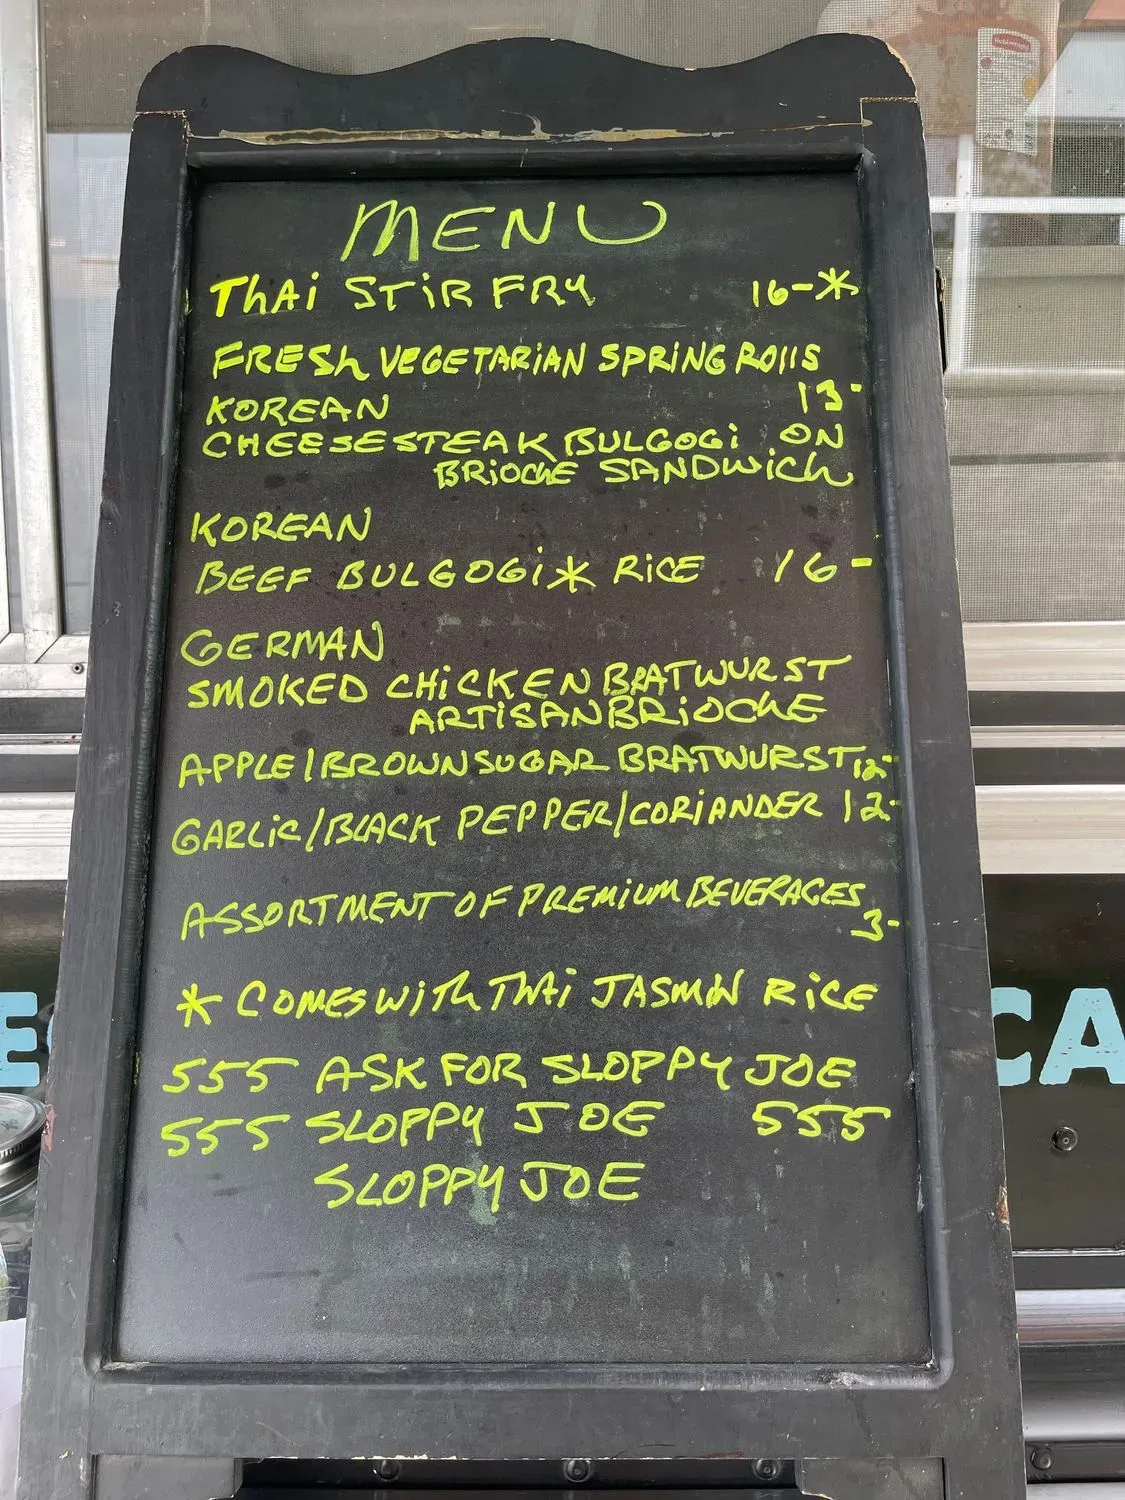 MENU
THAI STIR FRY 16-*
FRESH VEGETARIAN SPRING ROLLS
KOREAN 13-
CHEESESTEAK BULGOGI ON
BRIOCHE SANDWICH
KOREAN
BEEF BULGOGI* RICE 16-
GERMAN
SMOKED CHICKEN BRATWURST
ARTISAN BRIOCHE
APPLE/BROWN SUGAR BRATWURST 12-
GARLIC/BLACK PEPPER/CORIANDER 12-
ASSORTMENT OF PREMIUM BEVERAGES
3-
* COMES WITH THAI JASMIN RICE
555 ASK FOR SLOPPY JOE
555 SLOPPY JOE 555
SLOPPY JOE
E
CA
Rubbermaid